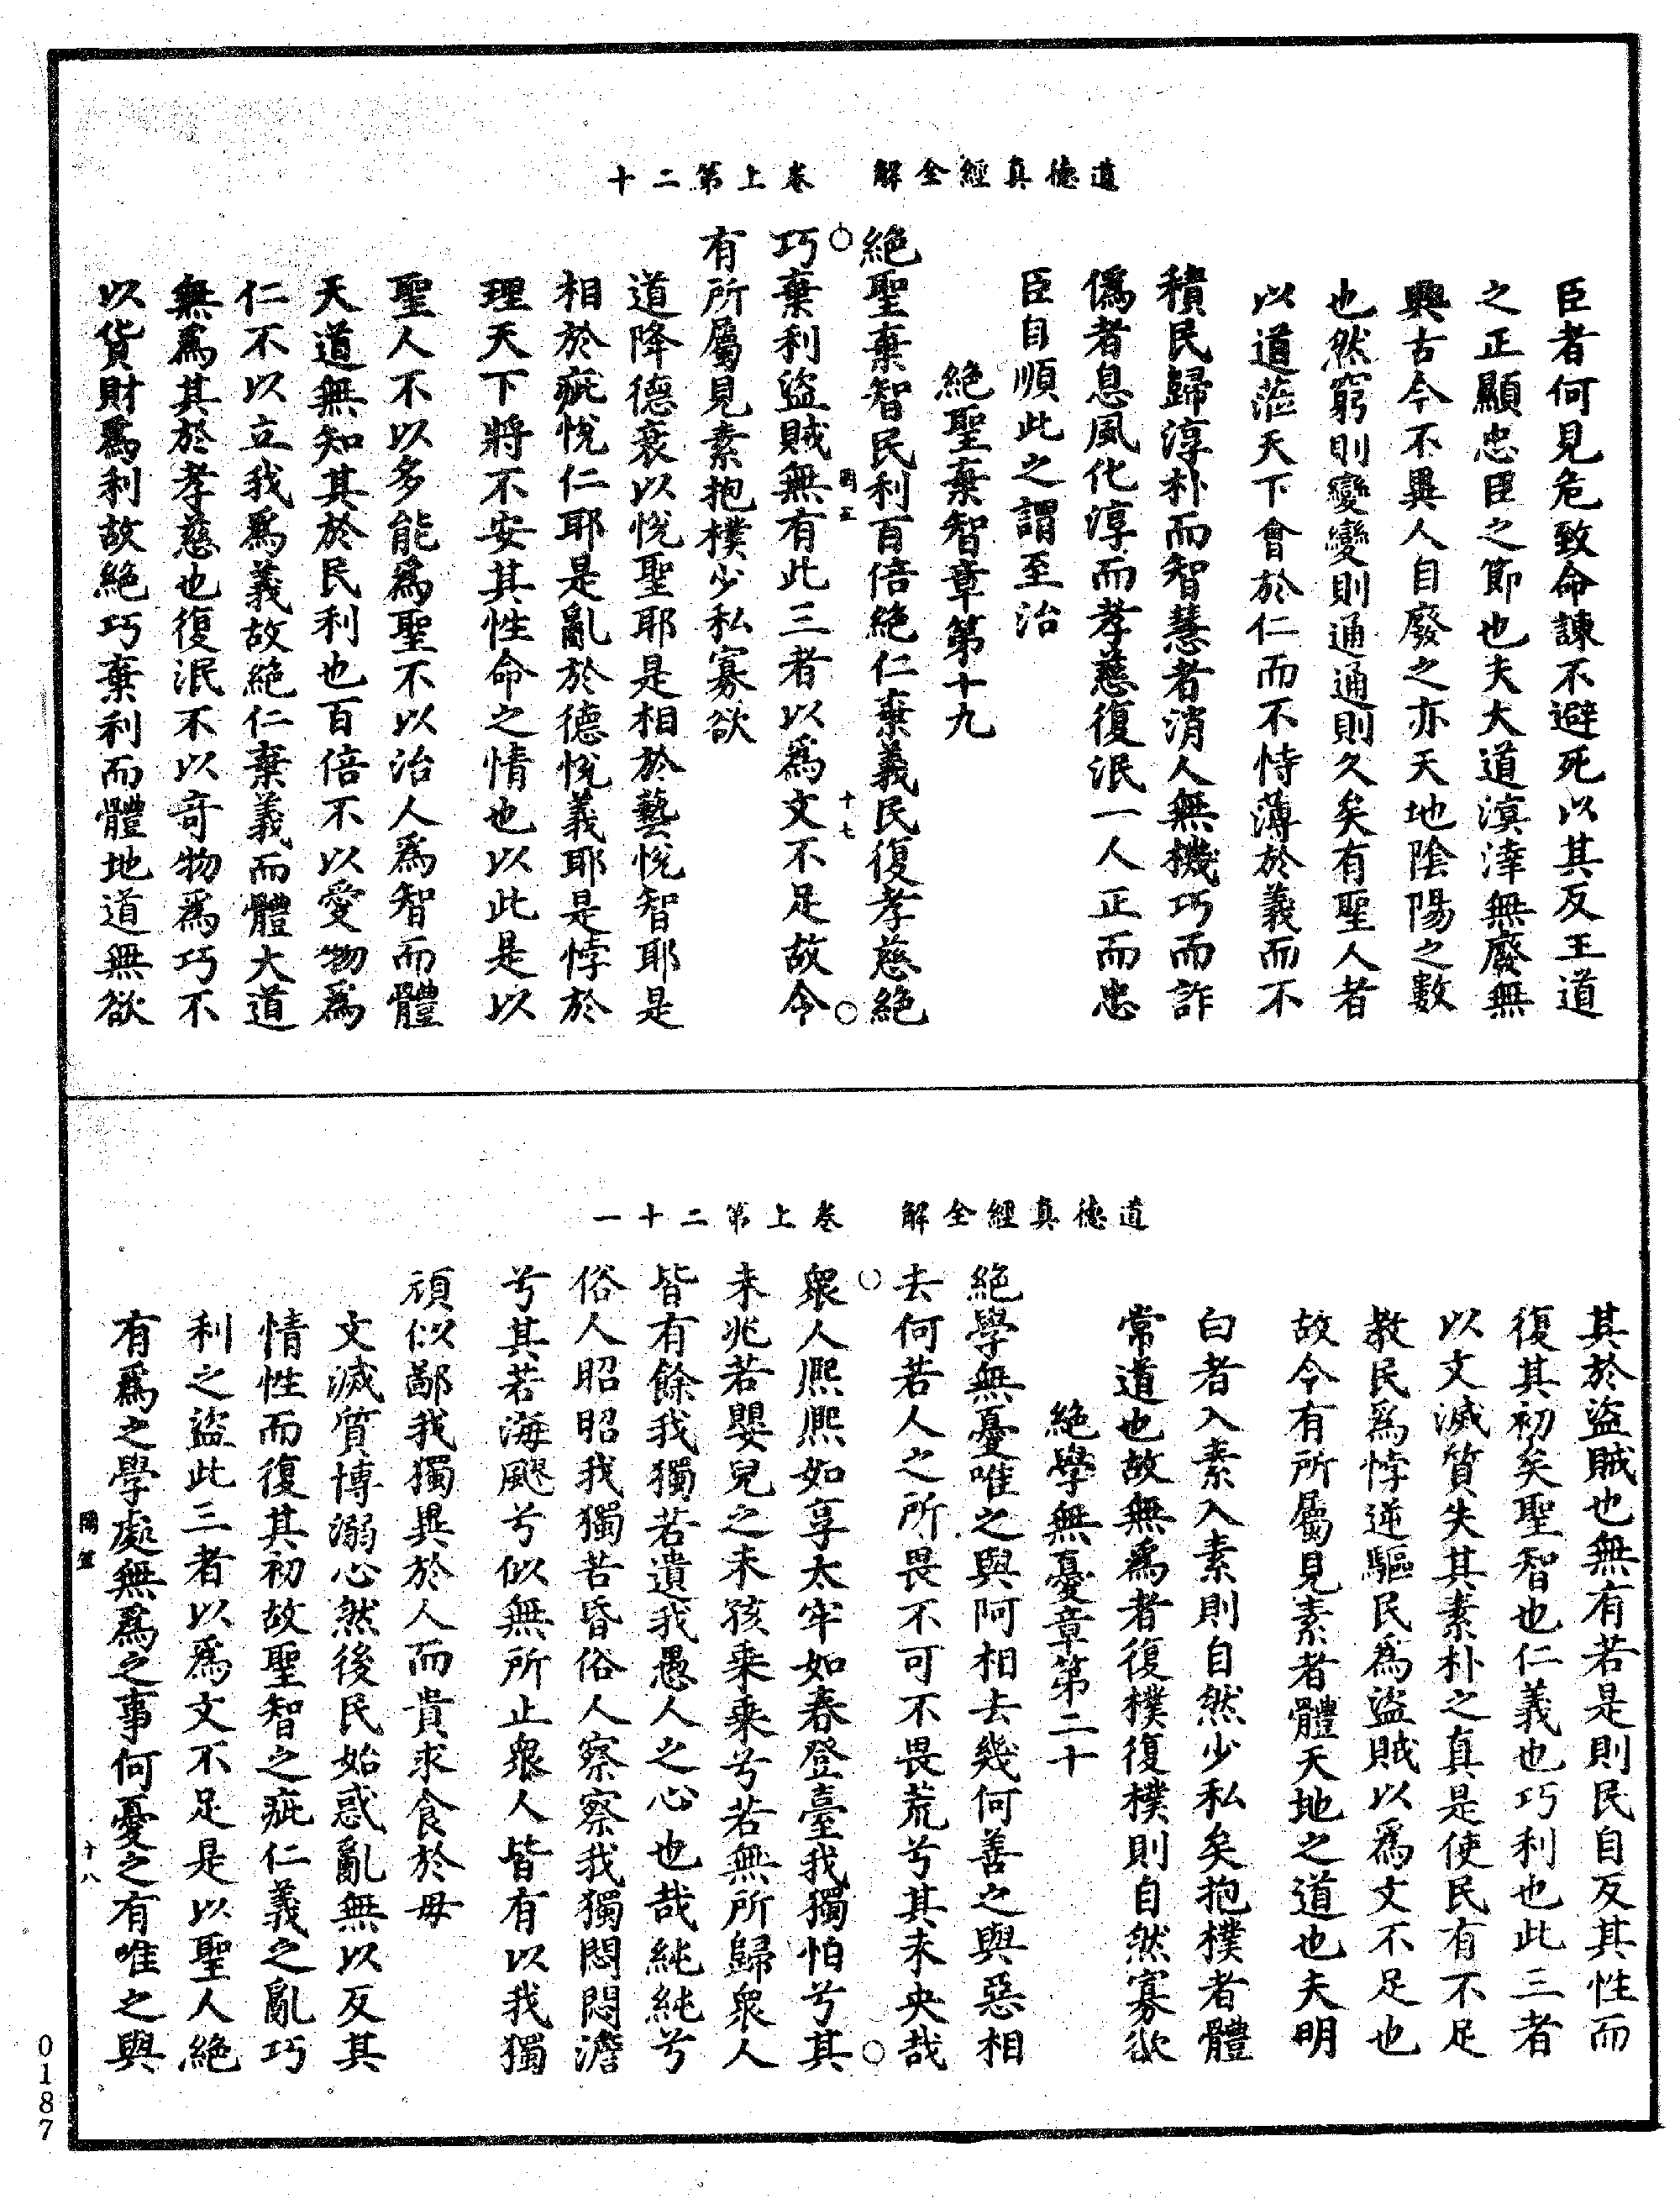 道德真經全解　卷上第二十
臣者何見危致命諫不避死以其反王道
之正顯忠臣之節也夫大道滇涬無廢無
興古今不異人自廢之亦天地陰陽之數
也然窮則變變則通通則久矣有聖人者
以道蒞天下會於仁而不恃薄於義而不
積民歸淳朴而智慧者消人無機巧而詐
僞者息風化淳而孝慈復泯一人正而忠
臣自順此之謂至治
絶聖棄智章第十九
絶聖棄智民利百倍絶仁棄義民復孝慈絶
巧棄利盜賊無有此三者以爲文不足故令
十七
有所屬見素抱樸少私寡欲
道降德衰以悅聖耶是相於藝悅智耶是
相於疵悅仁耶是亂於德悅義耶是悖於
理天下將不安其性命之情也以此是以
聖人不以多能爲聖不以治人爲智而體
天道無知其於民利也百倍不以愛物爲
仁不以立我爲義故絶仁棄義而體大道
無爲其於孝慈也復泯不以奇物爲巧不
以貨財爲利故絶巧棄利而體地道無欲
道德真經全解　卷上第二十一
其於盜賊也無有若是則民自反其性而
復其初矣聖智也仁義也巧利也此三者
以文滅質失其素朴之真是使民有不足
教民爲悖逆驅民爲盜賊以爲文不足也
故令有所屬見素者體天地之道也夫明
白者入素入素則自然少私矣抱樸者體
常道也故無爲者復樸復樸則自然寡欲
絶學無憂章第二十
絶學無憂唯之與阿相去幾何善之與惡相
去何若人之所畏不可不畏荒兮其未央哉
衆人熈熈如享太牢如春登臺我獨怕兮其
未兆若嬰兒之未孩乗乗兮若無所歸衆人
皆有餘我獨若遺我愚人之心也哉純純兮
俗人昭昭我獨若昏俗人察察我獨悶悶澹
兮其若海飂兮似無所止衆人皆有以我獨
頑似鄙我獨異於人而貴求食於母
文滅質博溺心然後民始惑亂無以反其
情性而復其初故聖智之疵仁義之亂巧
利之盜此三者以爲文不足是以聖人絶
有爲之學處無爲之事何憂之有唯之與
十八
0187